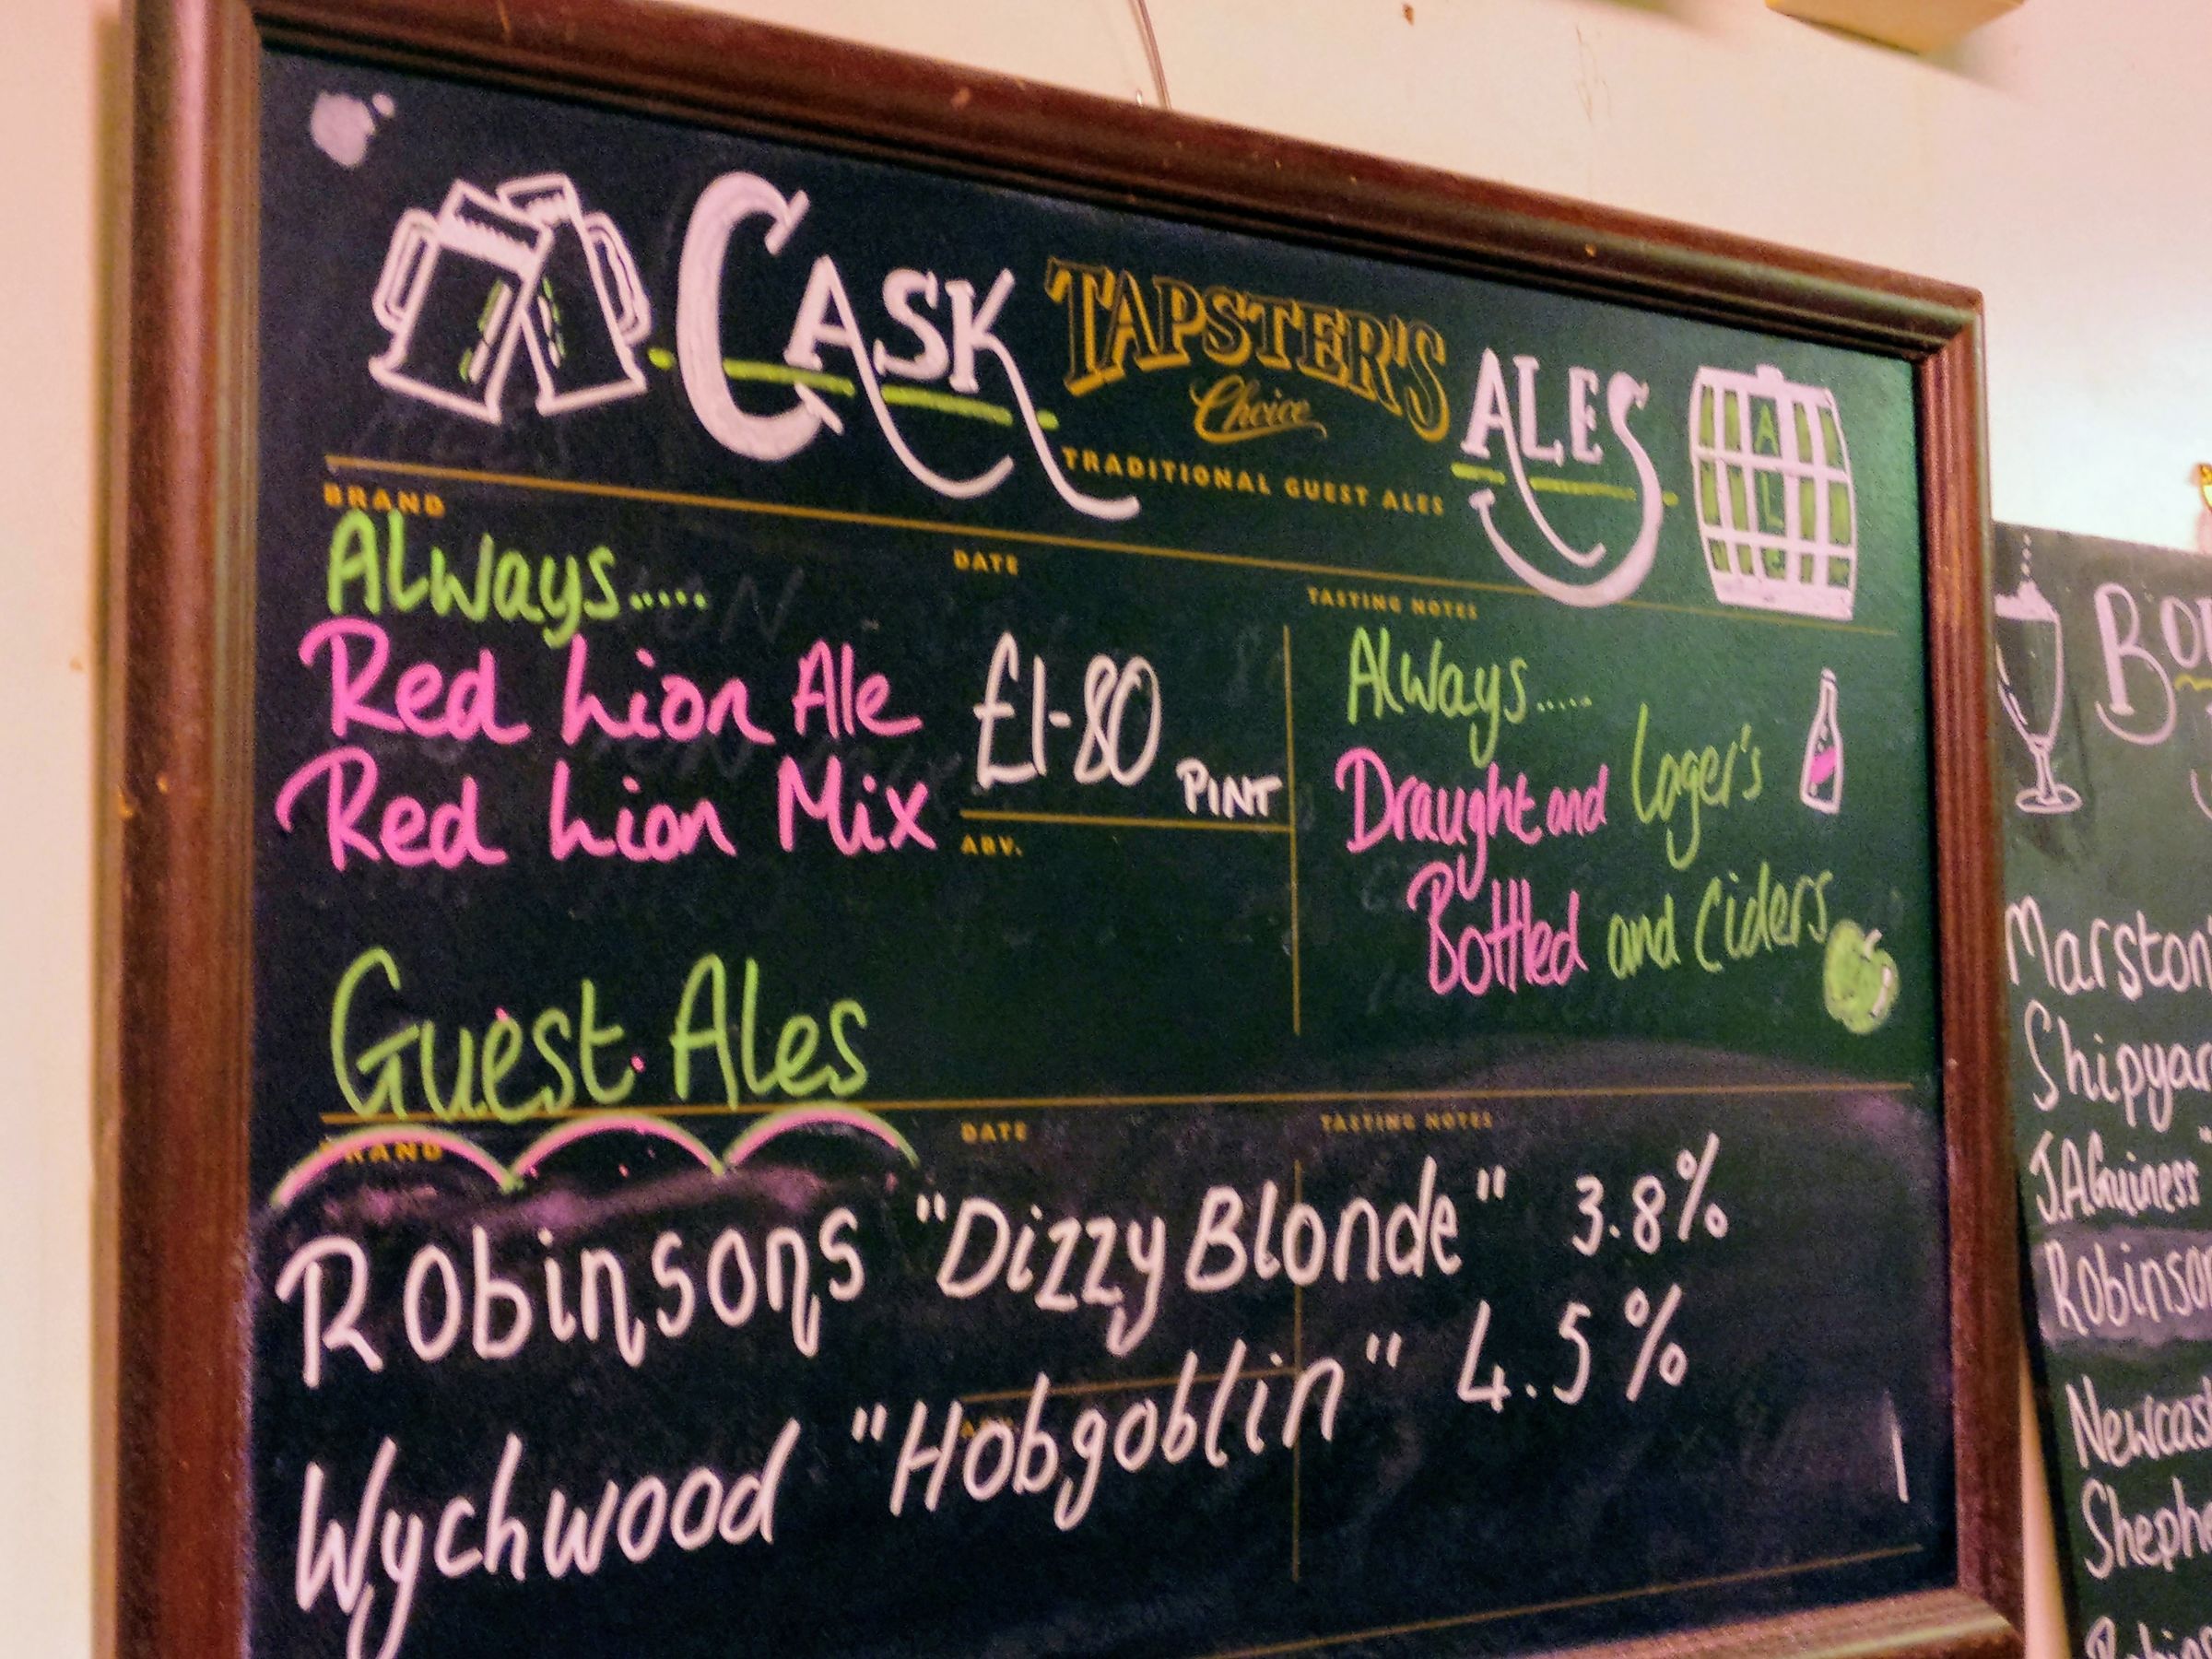 CASK TAPSTER'S ALES
Choice
TRADITIONAL GUEST ALES
A
L
BRAND
DATE
TASTING NOTES
Always.....
Red Lion Ale
Red Lion Mix
£1-80 PINT
ABV.
Always.....
Draught and Lager's
Bottled and Ciders
Guest Ales
BRAND
DATE
TASTING NOTES
Robinsons "Dizzy Blonde" 3.8%
Wychwood "Hobgoblin" 4.5%
Marston
Shipyar
J.A.Guiness
Robinso
Newcas
Sheph